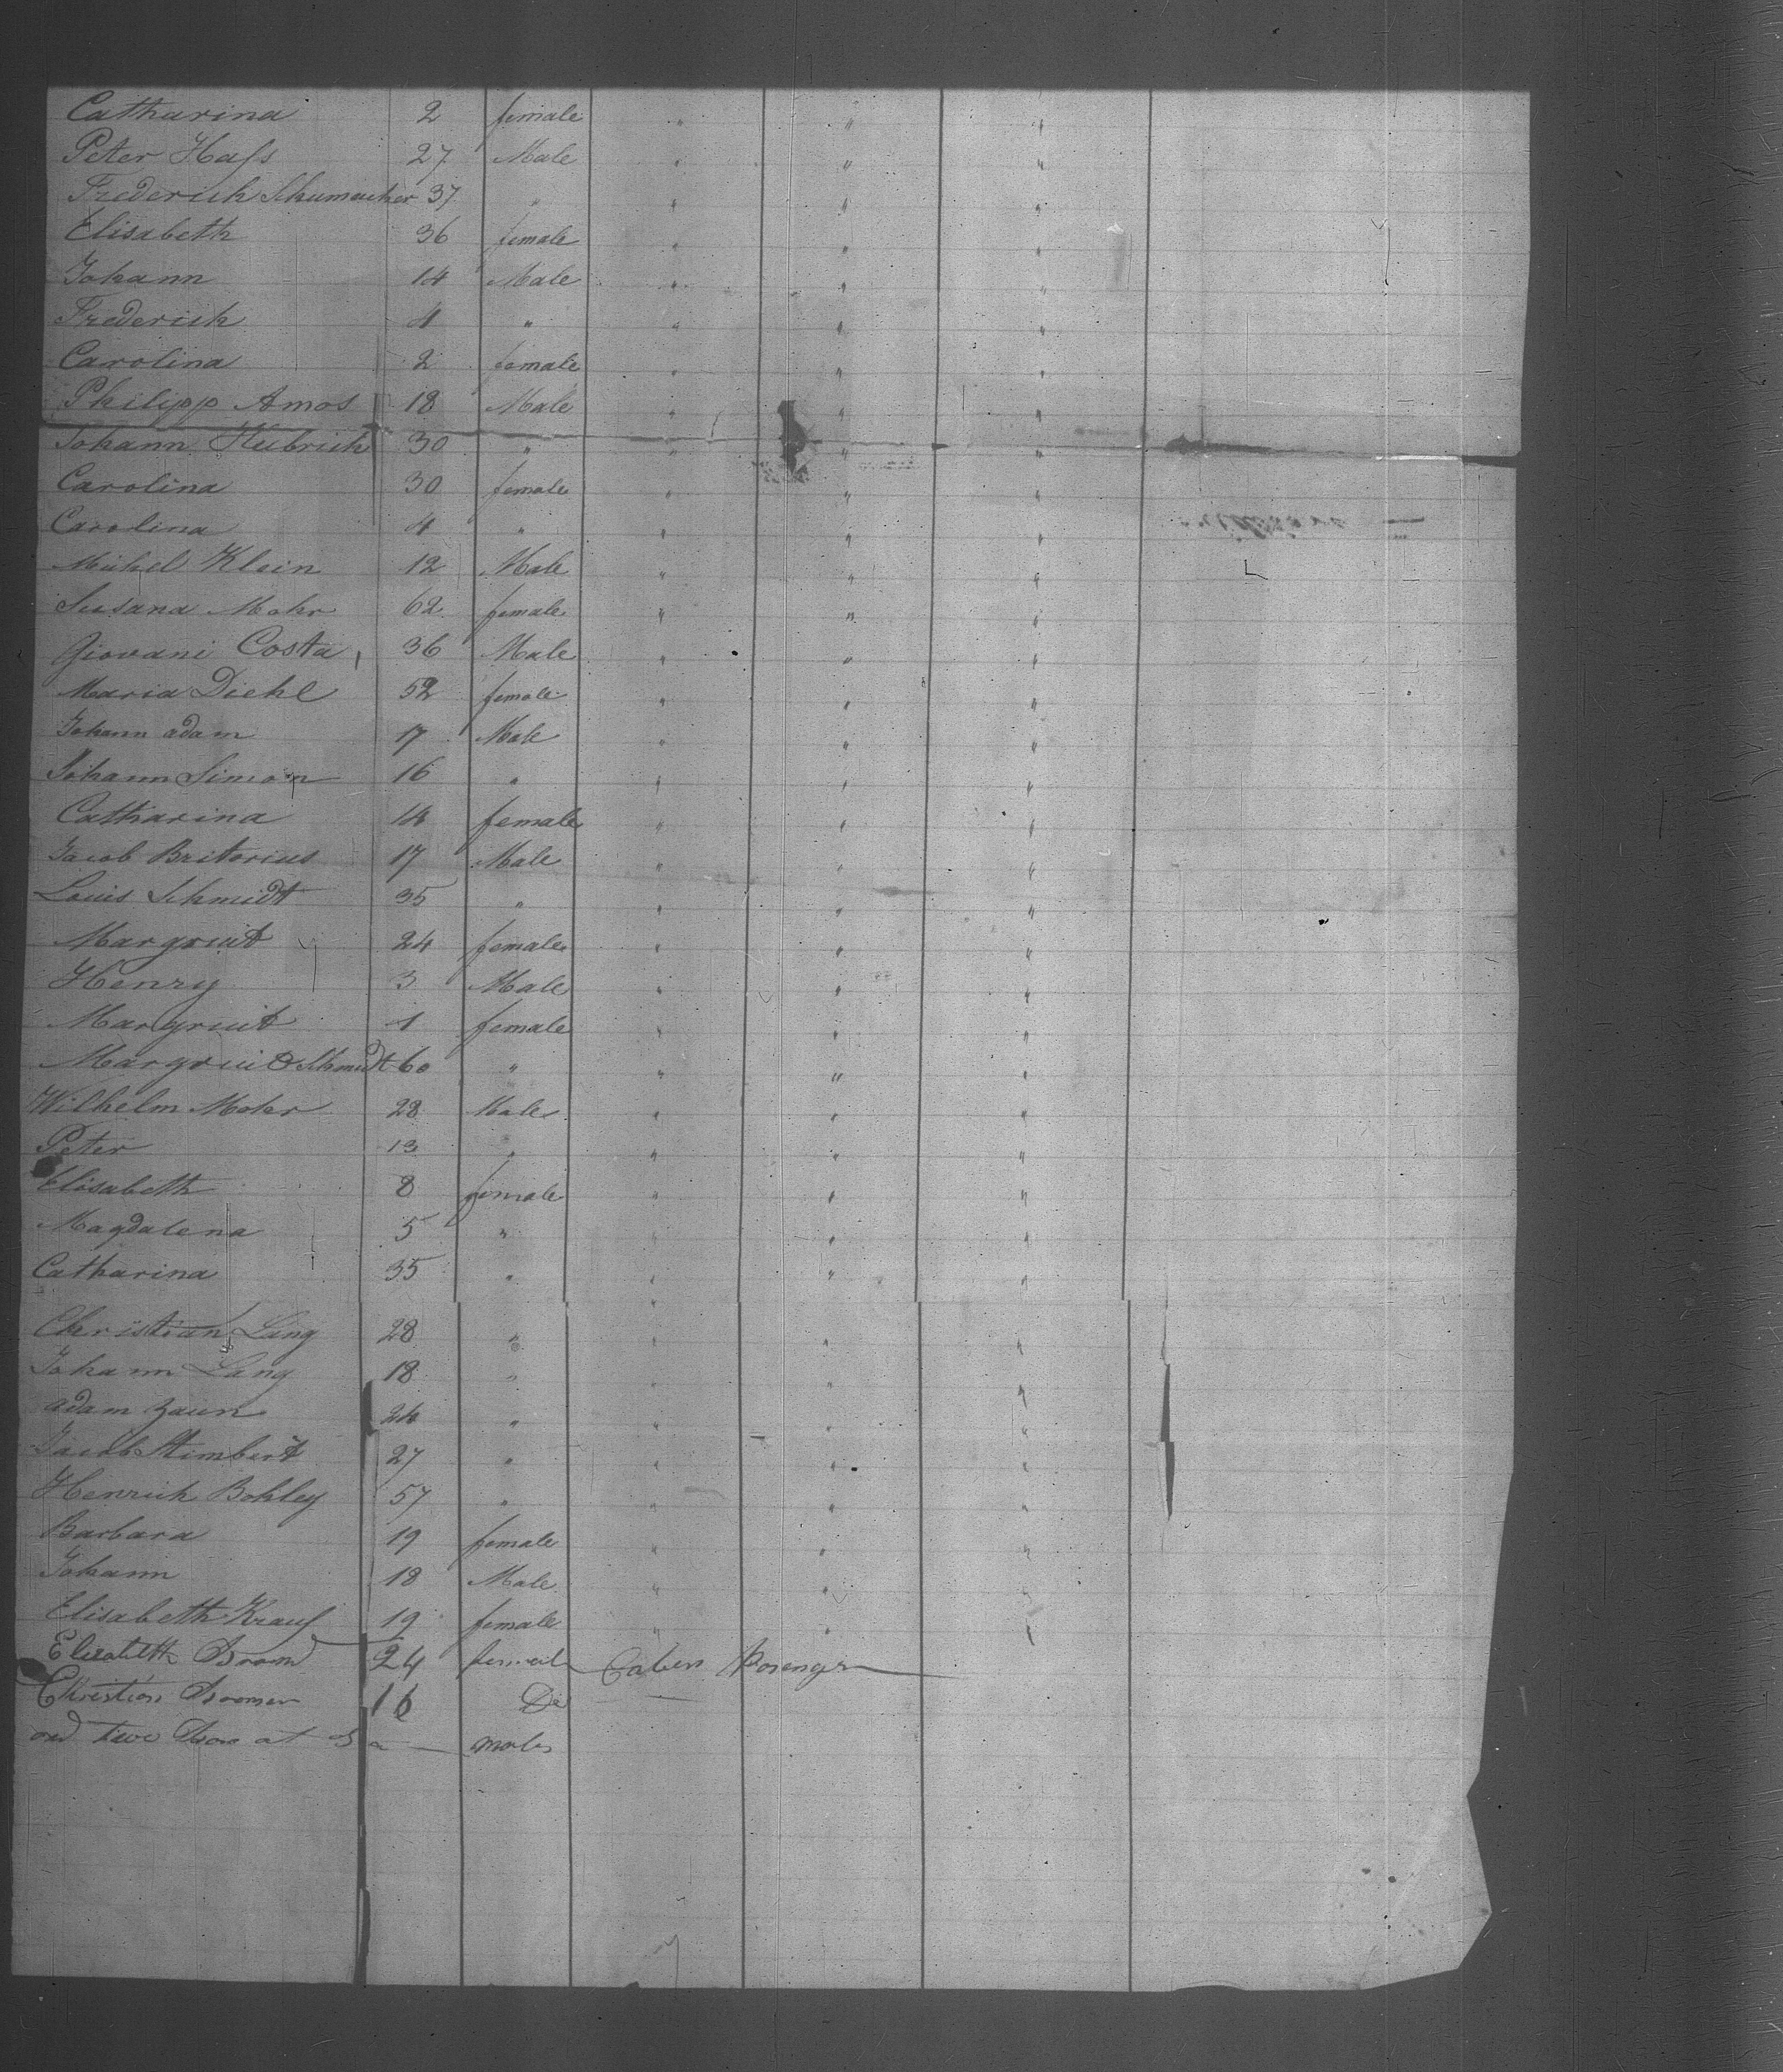 Catharina 2 female " " "
Peter Hafs 27 Male " " "
Frederich Schumacher 37 " " " "
Elisabeth 36 female " " "
Johann 14 Male " " "
Frederich 4 " " " "
Carolina 2 female " " "
Philipp Amos 18 Male " " "
Johann Heibrich 30 " " " "
Carolina 30 female " " "
Carolina 4 " " " "
Michel Klein 12 Male " " "
Susana Mohr 62 female " " "
Giovani Costa 36 Male " " "
Maria Diehl 52 female " " "
Johann adam 17 Male " " "
Johann Simon 16 " " " "
Catharina 14 female " " "
Jacob Britorius 17 Male " " "
Louis Schmidt 35 " " " "
Margruit 24 female " " "
Henry 3 Male " " "
Margruit 1 female " " "
Margruit Schmidt 60 " " " "
Wilhelm Mohr 28 Male " " "
Peter 13 " " " "
Elisabeth 8 female " " "
Magdalena 5 " " " "
Catharina 35 " " " "
Christian Lang 28 " " " "
Johann Lang 18 " " " "
adam Zaun 24 " " " "
Jacob Stimbert 27 " " " "
Henrich Bohley 57 " " " "
Barbara 19 female " " "
Johann 18 Male " " "
Elisabeth Krauf 19 female " " "
Elizabeth 24 female Caben
Christian 16 Do
and two at